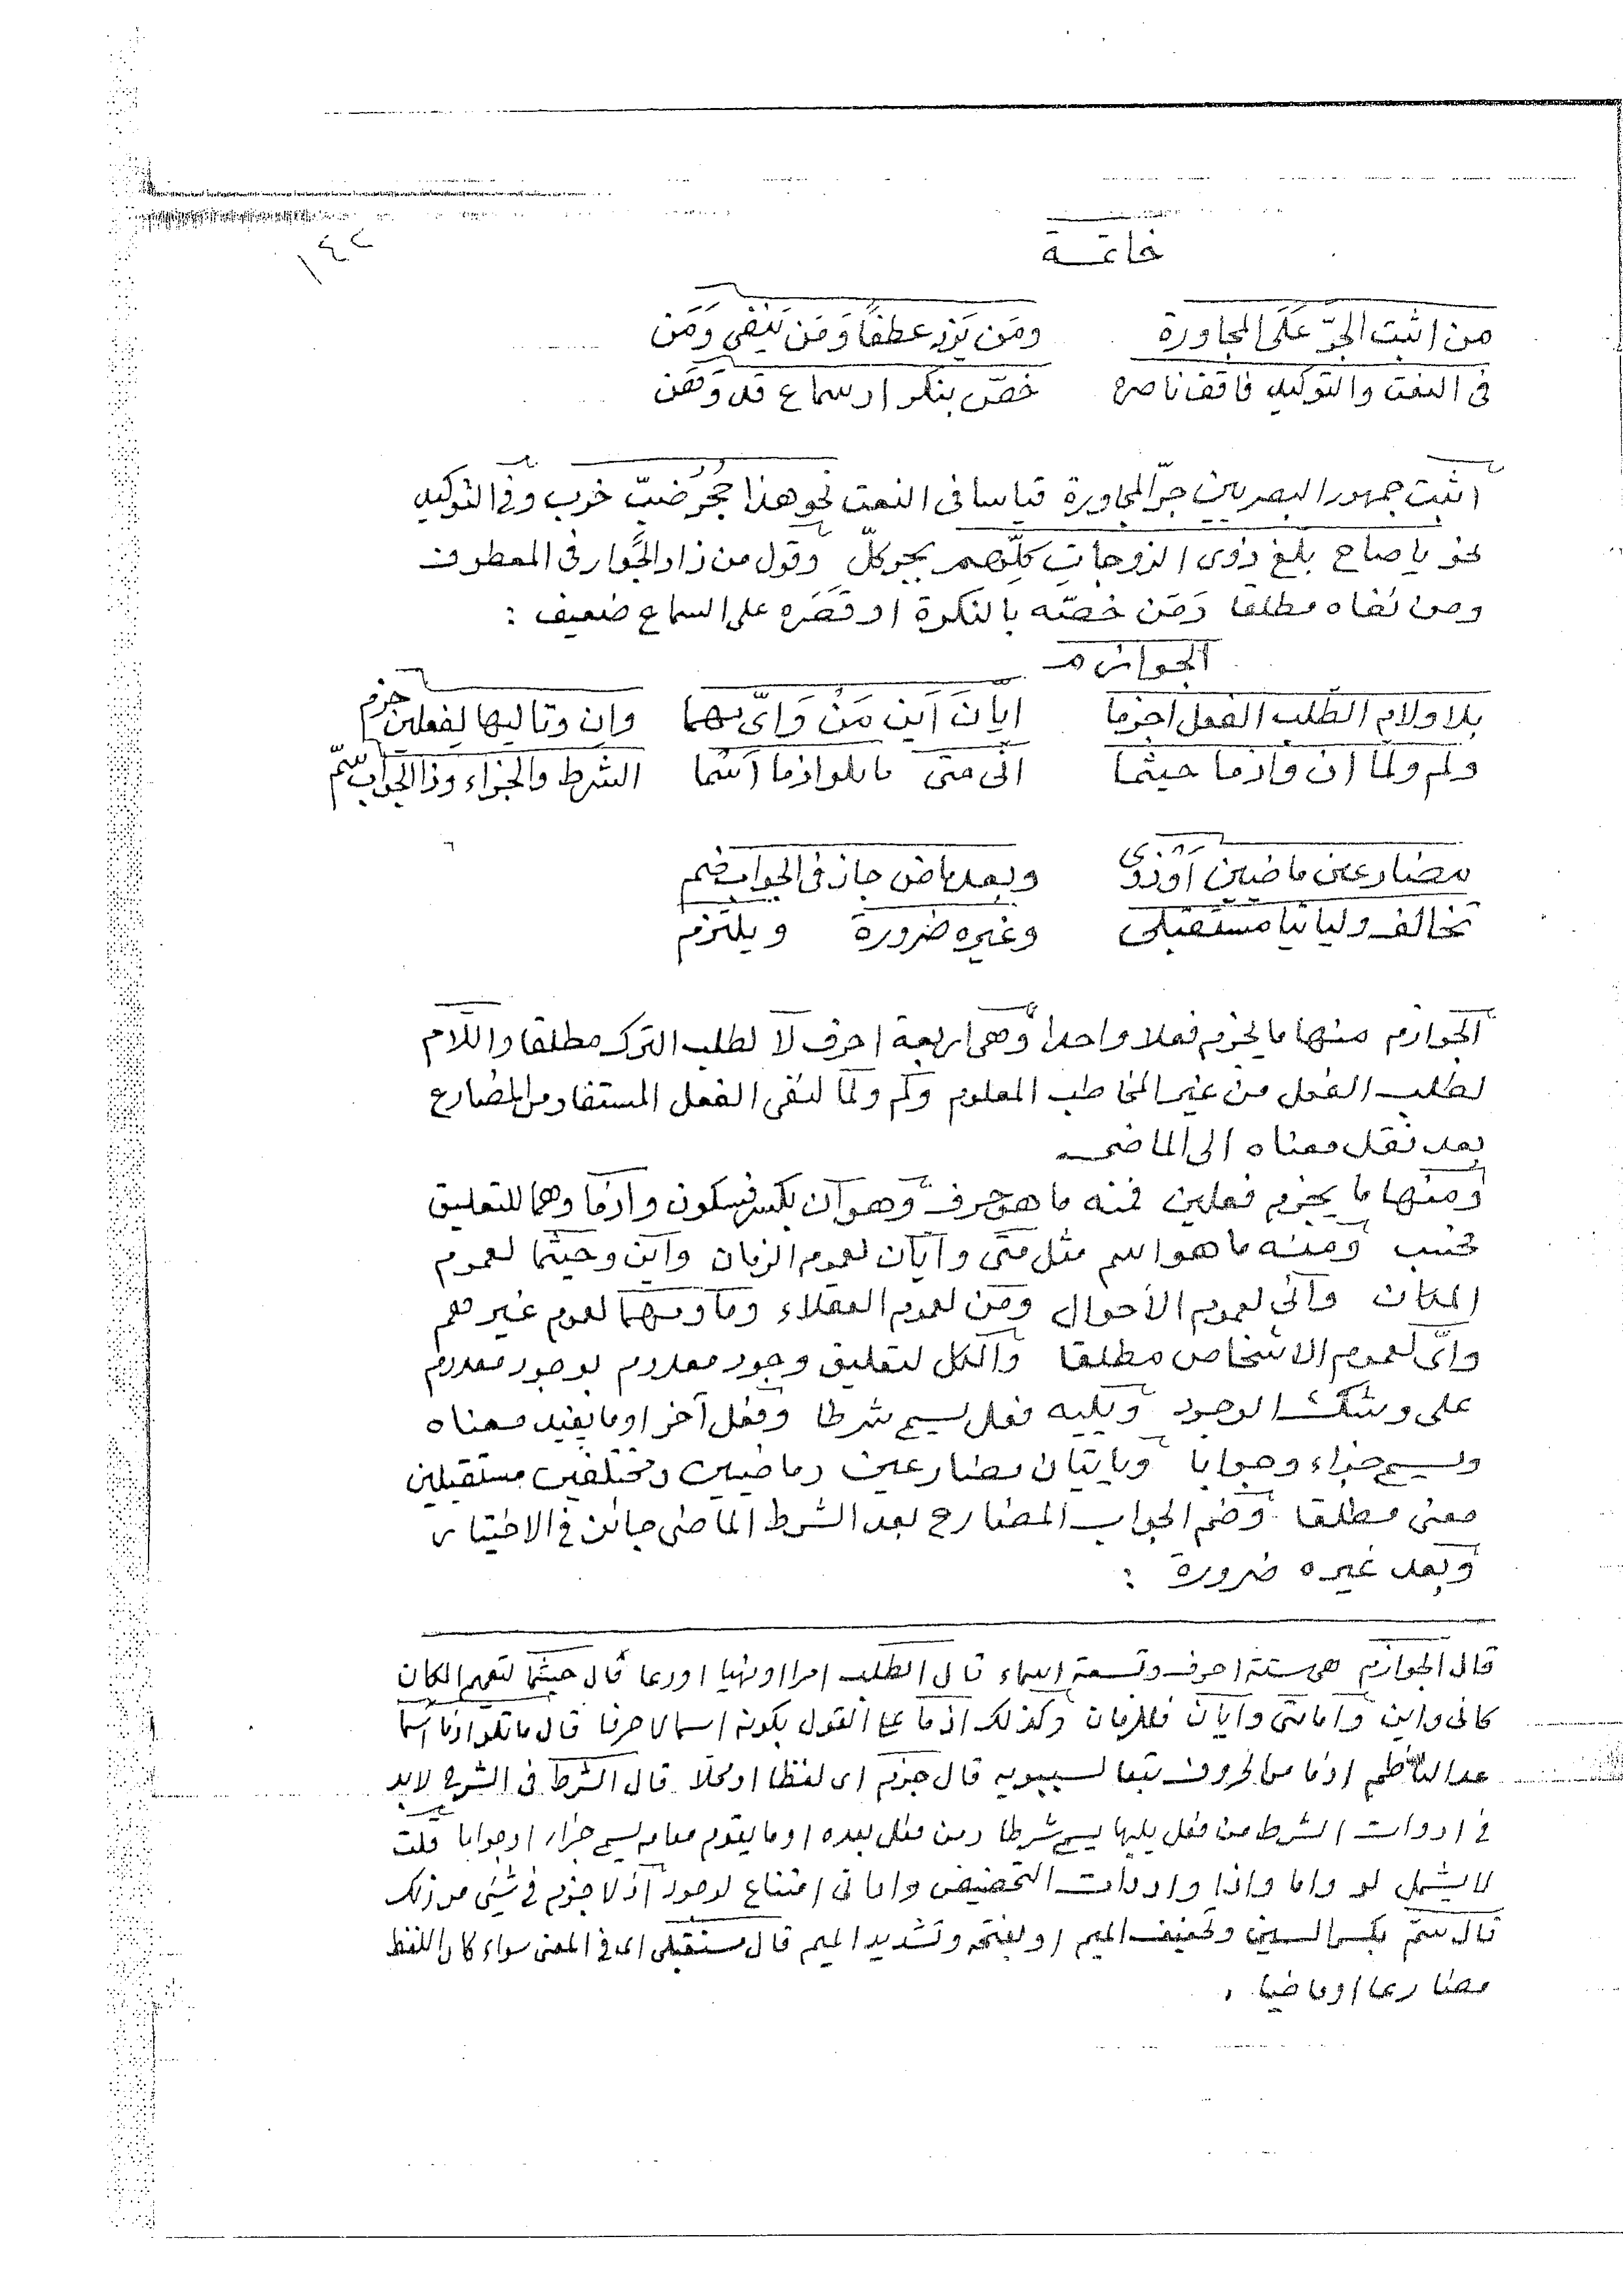 ١٤٢
خاتمة
من اثبت الجرّ عَلَى المجاورة ومَن يَزد عطفًا وَمَن يَنفي وَمَن
فى النعت والتوكيد فاقف ناصره خصّ بنكر او سماع قد وَهَن
أثبت جمهور البصريين جرّ المجاورة قياسا فى النعت نحو هذا جُحرُ ضبٍّ خرب وفى التوكيد
نحو يا صاح بلغ ذوى الزوجاتِ كلِّهم بجر كلّ وقول من زاد الجوار فى المعطوف
ومن نفاه مطلقا وَمَن خصّه بالنكرة او قصَره على السماع ضعيف :
الجوازم
بلا ولام الطّلب الفعل اجزما ايّانَ اَين مَنْ وَاىّ مهما وان وتاليها لفعلين جزم
ولم ولمّا ان واذما حيثما انّى متى ما تلو اذما اَسما الشرط والجزاء وذا الجواب سمّ
مضارعين ماضيين اَو ذوى وبعد ماض جاز فى الجواب ضم
تخالف وليأتيا مستقبلى وغيره ضرورة ويلتزم
الجوازم منها ما يجزم فعلا واحدا وهى اربعة احرف لا لطلب الترك مطلقا واللّام
لطلب الفعل من غير المخاطب المعلوم ولم ولمّا لنفى الفعل المستفاد من المضارع
بعد نقل معناه الى الماضى
ومنها ما يجزم فعلين فمنه ما هو حرف وهو اَن بكسر فسكون واذما وهما للتعليق
فحسب ومنه ما هو اسم مثل متى وايّان لعموم الزمان واَين وحيثما لعموم
المكان واَنّى لعموم الأحوال ومَن لعموم العقلاء وما ومهما لعموم غيرهم
واَىّ لعموم الاشخاص مطلقا والكل لتعليق وجود معدوم بوجود معدوم
على وشك الوجود ويليه فعل يسمى شرطا وفعل آخر او ما يفيد معناه
ويسمى جزاء وجوابا ويأتيان مضارعين وماضيين ومختلفين مستقبلين
معنى مطلقا وضم الجواب المضارع بعد الشرط الماضى جائز فى الاختيار
وبعد غيره ضرورة :
قال الجوازم هى ستة احرف وتسعة اسماء قال الطلب امرا او نهيا او دعا قال حيثما لتعميم المكان
كانّى واين واما متى وايّان فللزمان وكذلك اذما على القول بكونه اسما لا حرفا قال ما تلو اذما اَسما
عد الناظم اذما من الحروف تبعا لسيبويه قال جزم اى لفظا او محلا قال الشرط فى الشرح لا بد
فى ادوات الشرط من فعل يليها يسمى شرطا ومن فعل بعده او ما يقوم مقامه يسمى جزاء او جوابا قلت
لا يشمل لو واما واذا وادوات التحضيض واما فى امتناع لوجود اذ لا جزم فى شئى من ذلك
قال سمّ بكسر السين وتخفيف الميم او بفتحه وتشديد الميم قال مستقبلى اى فى المعنى سواء كان اللفظ
مضارعا او ماضيا .